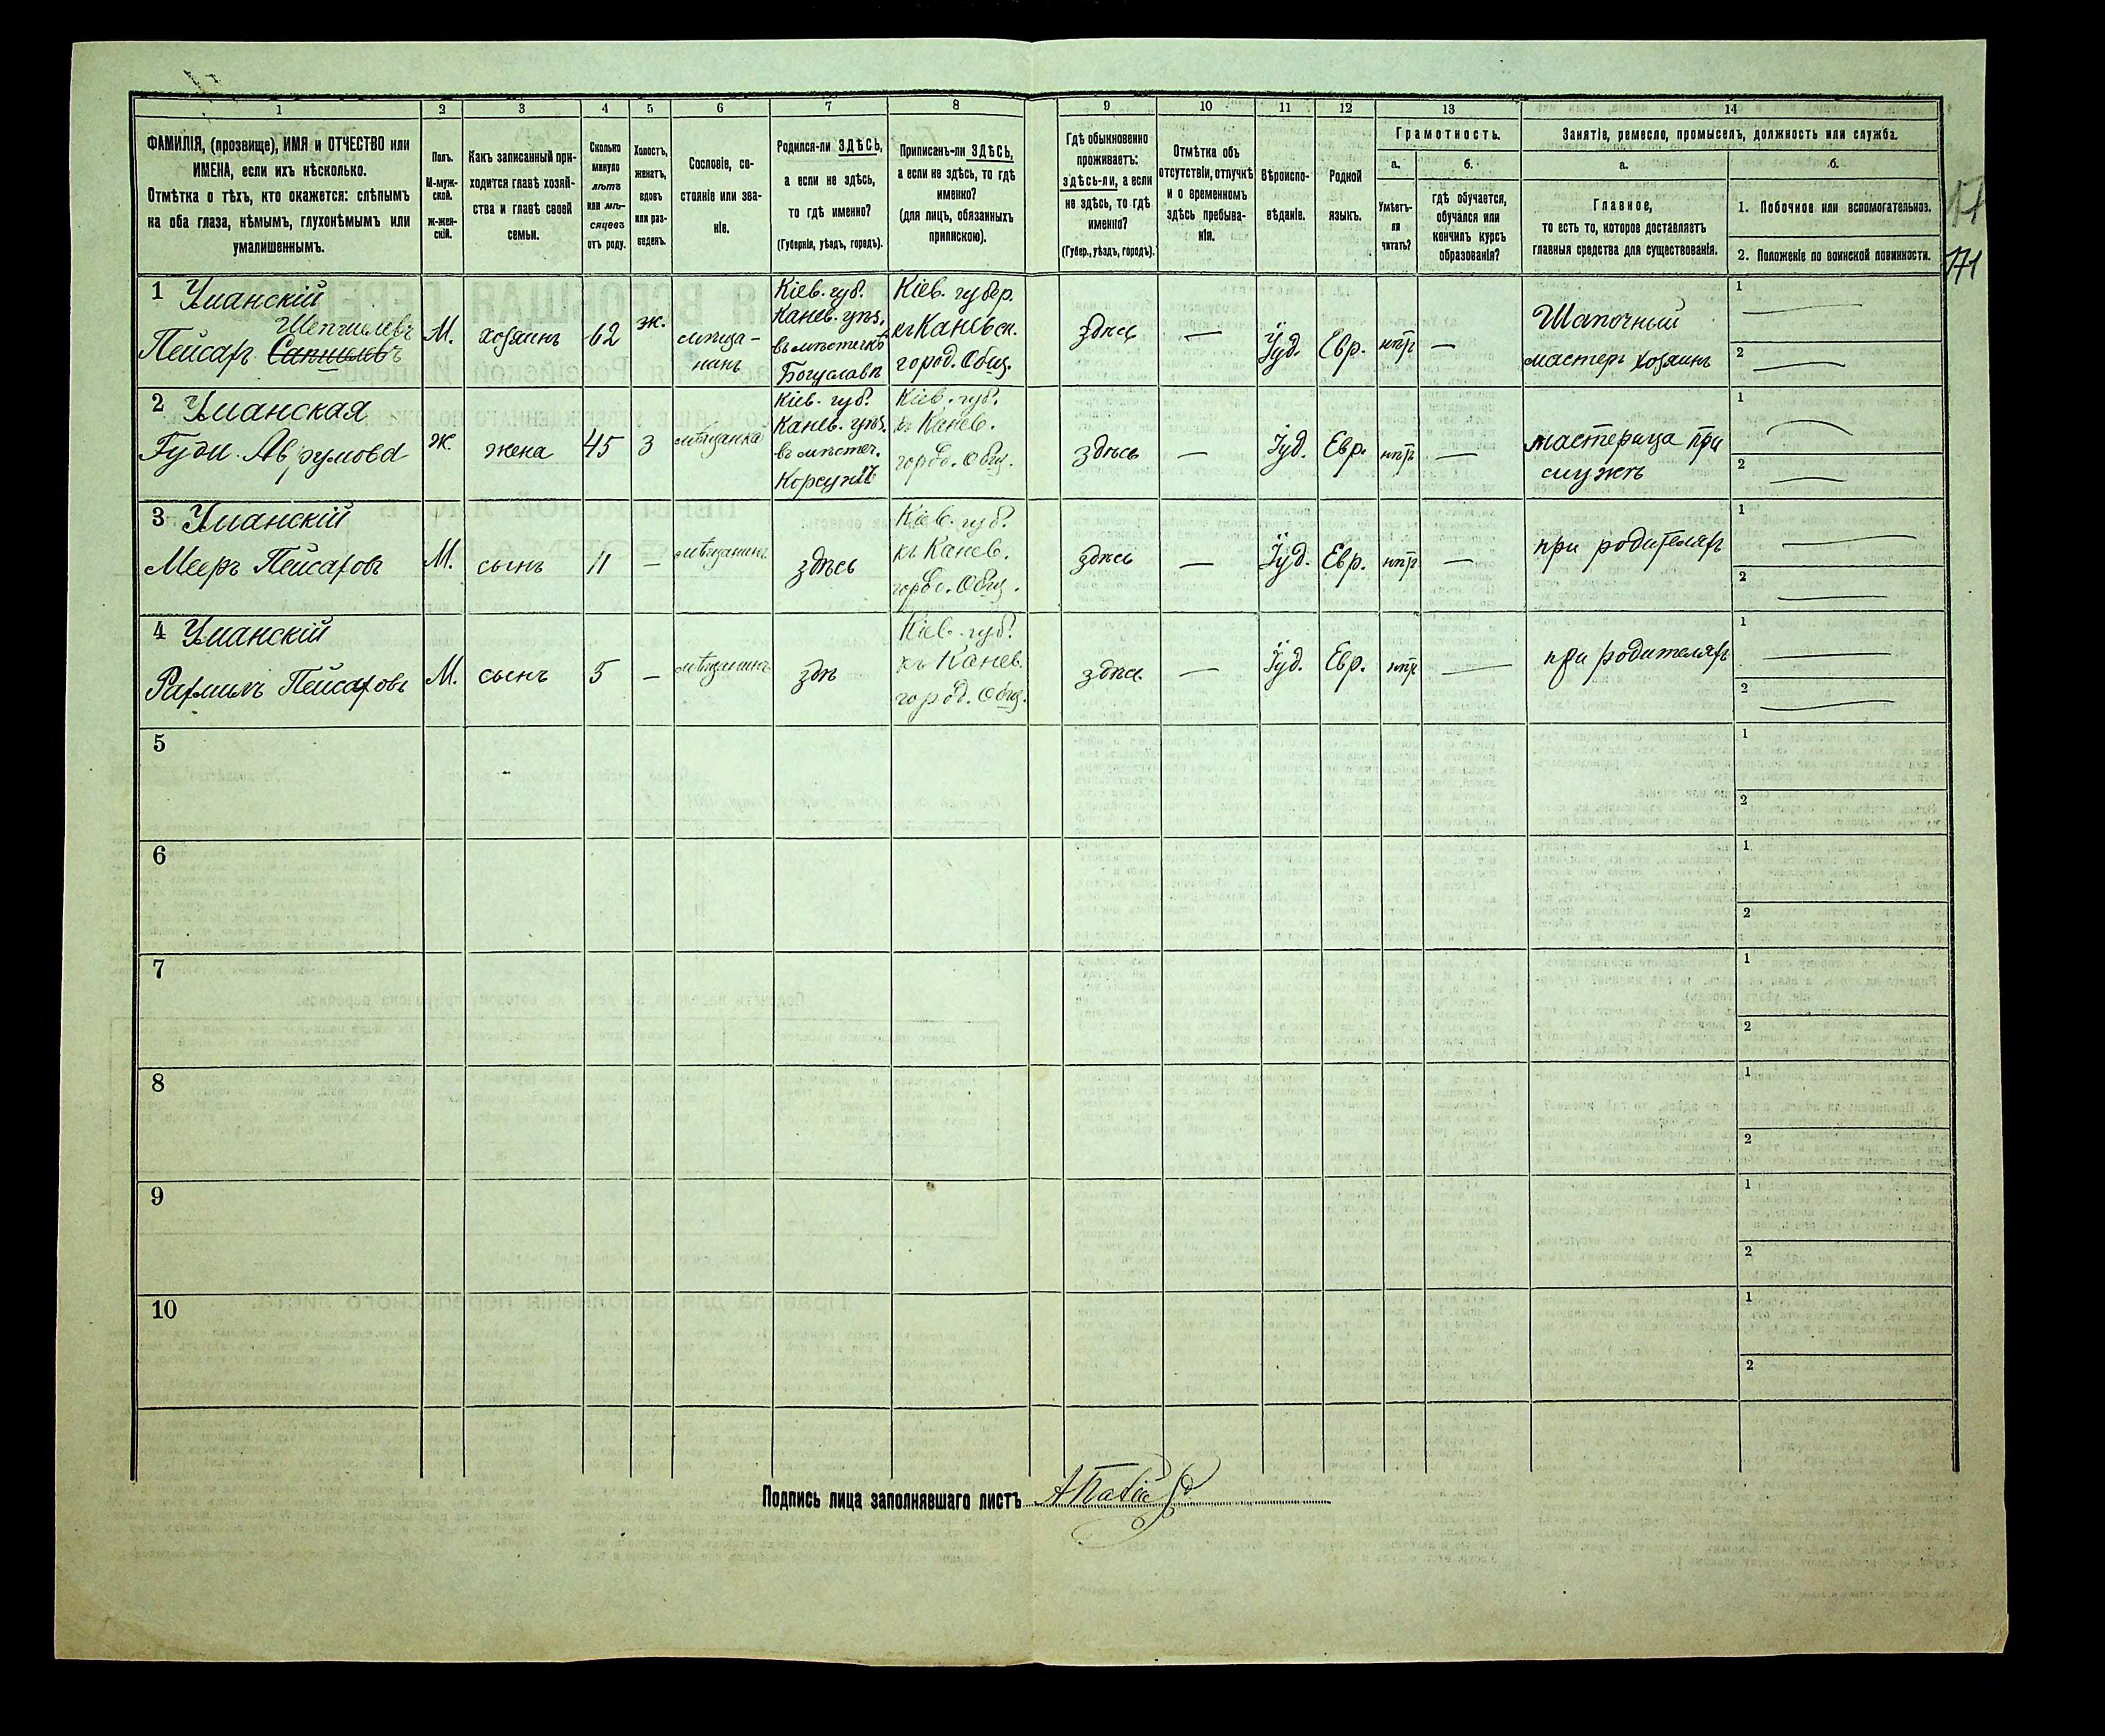 1 2 3 4 5 6 7 8 9 10 11 12 13 14
ФАМИЛІЯ, (прозвище), ИМЯ и ОТЧЕСТВО или
ИМЕНА, если ихъ нѣсколько.
Отмѣтка о тѣхъ, кто окажется: слѣпымъ
на оба глаза, нѣмымъ, глухонѣмымъ или
умалишеннымъ.
Полъ.
М-муж-
ской.
ж-жен-
скій.
Какъ записанный при-
ходится главѣ хозяй-
ства и главѣ своей
семьи.
Сколько
минуло
лѣтъ
или мѣ-
сяцевъ
отъ роду.
Холостъ,
женатъ,
вдовъ
или раз-
веденъ.
Сословіе, со-
стояніе или зва-
ніе.
Родился-ли ЗДѢСЬ,
а если не здѣсь,
то гдѣ именно?
(Губернія, уѣздъ, городъ).
Приписанъ-ли ЗДѢСЬ,
а если не здѣсь, то гдѣ
именно?
(для лицъ, обязанныхъ
припискою).
Гдѣ обыкновенно
проживаетъ:
здѣсь-ли, а если
не здѣсь, то гдѣ
именно?
(Губер., уѣздъ, городъ).
Отмѣтка объ
отсутствіи, отлучкѣ
и о временномъ
здѣсь пребыва-
ніи.
Вѣроиспо-
вѣданіе.
Родной
языкъ.
Грамотность.
а.
Умѣетъ-
ли
читать?
б.
гдѣ обучается,
обучался или
кончилъ курсъ
образованія?
Занятіе, ремесло, промыселъ, должность или служба.
а.
Главное,
то есть то, которое доставляетъ
главныя средства для существованія.
б.
1. Побочное или вспомогательное.
2. Положеніе по воинской повинности.
171
1 Уманскій
Пейсахъ
М.
хозяинъ
62
ж.
мѣща-
нинъ
Кіев. губ.
Канев. уѣз.
въ мѣстечкѣ
Богуславѣ
Кіев. губер.
къ Каневск.
город. Общ.
здѣсь
—
Іуд.
Евр.
—
Шапочный
мастеръ хозяинъ
1 —
2 —
2 Уманская
Гуди Аврумова
Ж.
жена
45
З
мѣщанка
Кіев. губ.
Канев. уѣз.
въ мѣстеч.
Корсунѣ
Кіев. губ.
къ Канев.
город. Общ.
здѣсь
—
Іуд.
Евр.
—
мастерица при
мужѣ
1 —
2 —
3 Уманскій
Мееръ Пейсаховъ
М.
сынъ
11
—
мѣщанинъ
здѣсь
Кіев. губ.
къ Канев.
город. Общ.
здѣсь
—
Іуд.
Евр.
—
при родителяхъ
1 —
2 —
4 Уманскій
Рахмилъ Пейсаховъ
М.
сынъ
5
—
мѣщанинъ
здѣ
Кіев. губ.
къ Канев.
город. Общ.
здѣс.
—
Іуд.
Евр.
—
при родителяхъ
1 —
2 —
5
1
2
6
1
2
7
1
2
8
1
2
9
1
2
10
1
2
Подпись лица заполнявшаго листъ